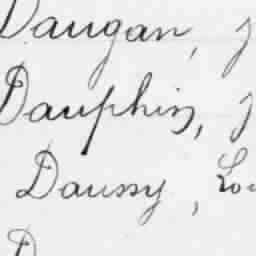 Daugan, J
Dauphin, J
Daussy, Lo
D